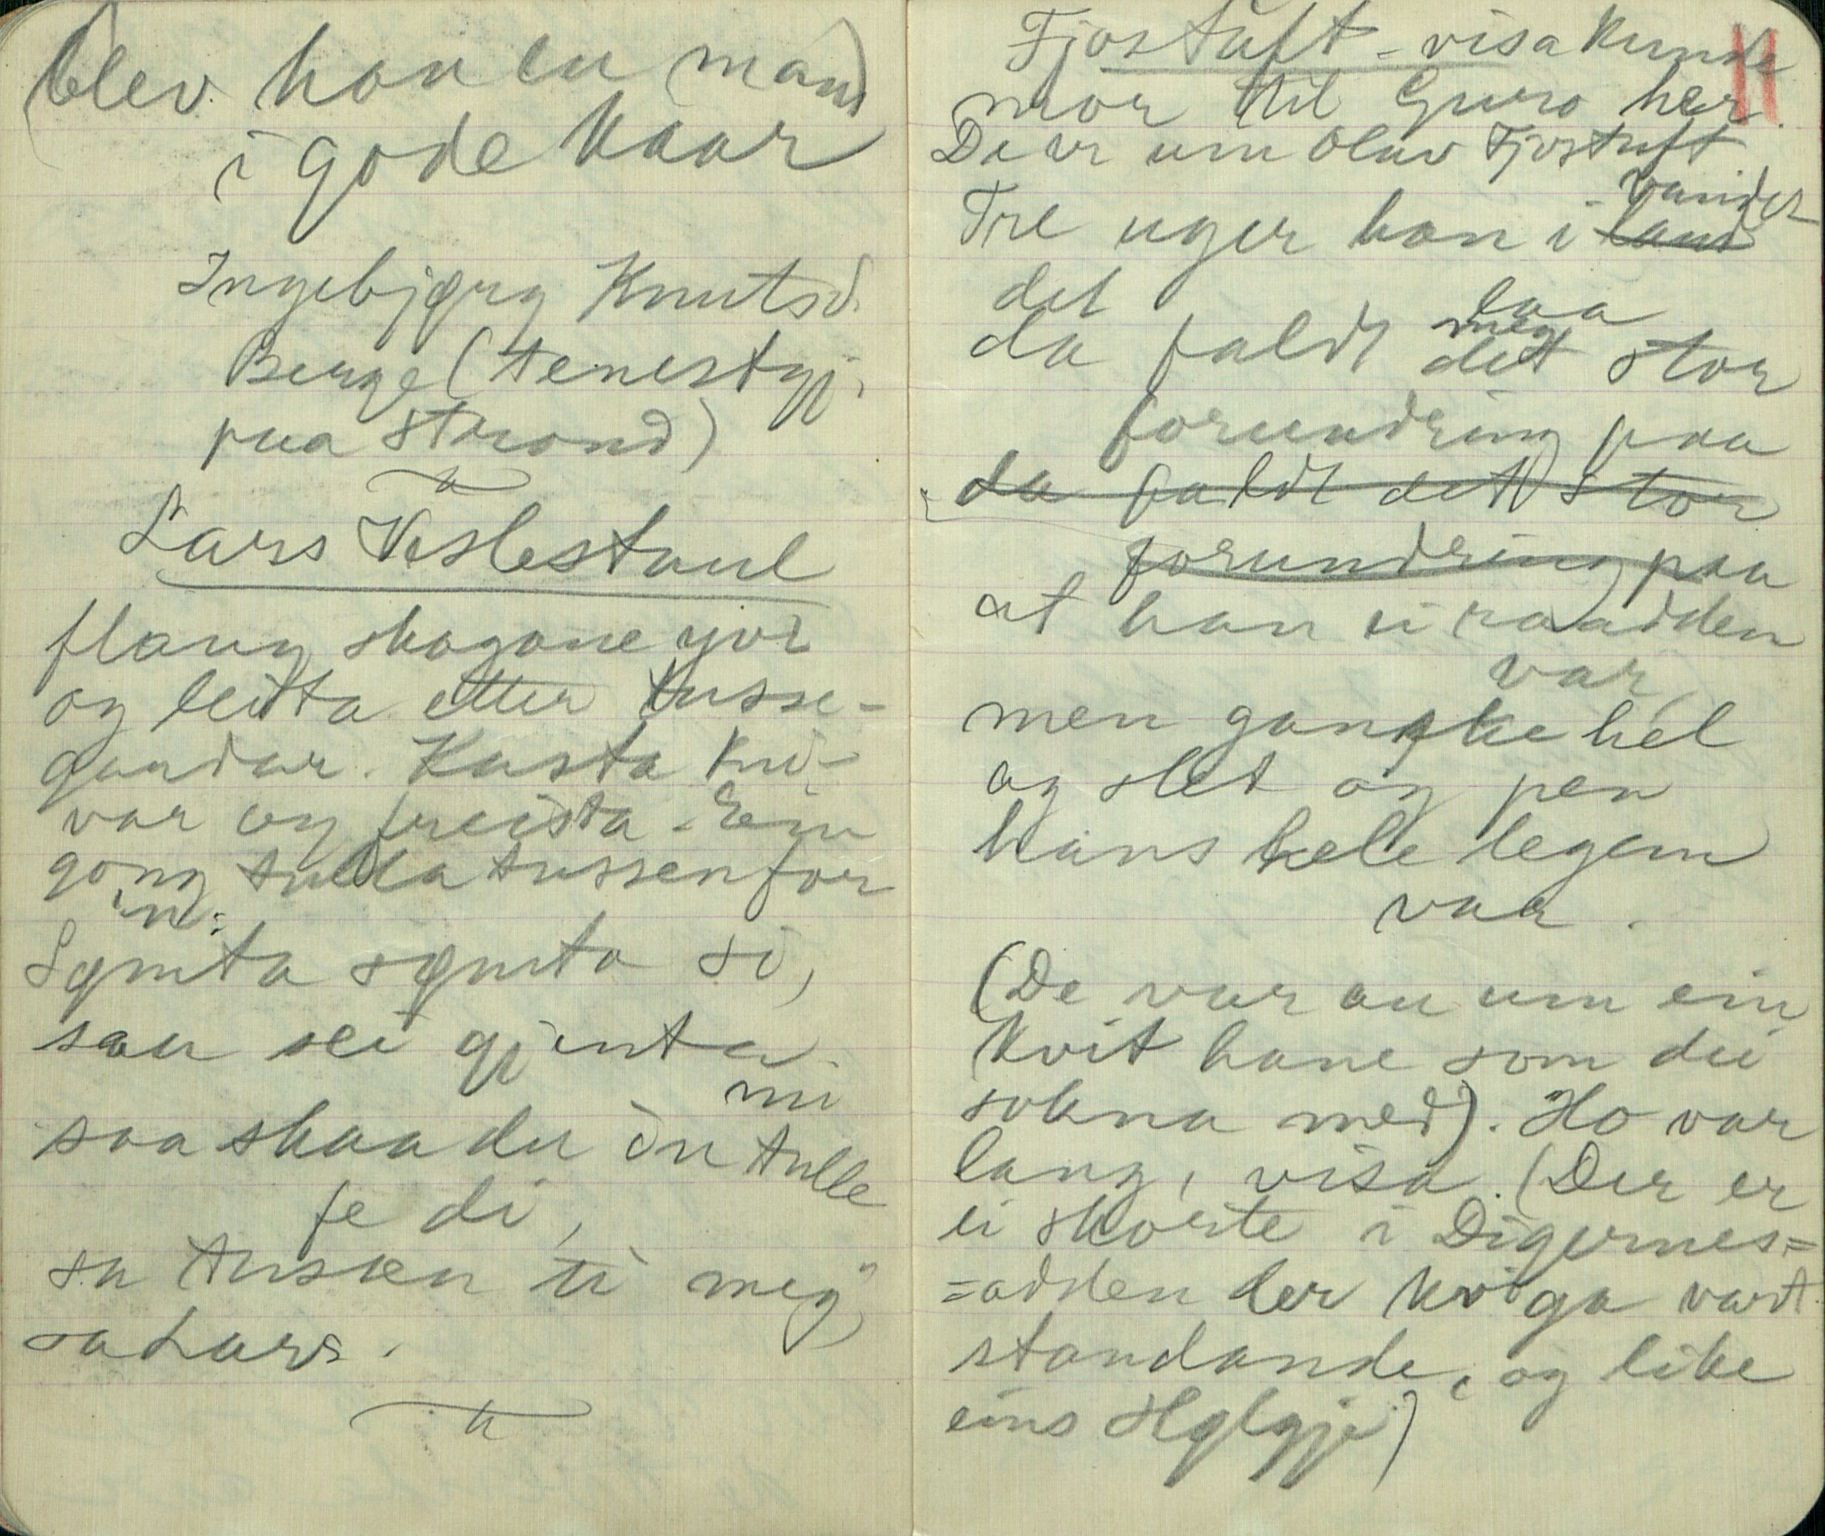 (blev han en mand)
i gode kaar
Ingebjørg Knutsd.
Berge (tenestgj.
paa Strond)
Lars Veslestaul
flaug skogane yvi
og leitta etter tusse-
gandar. Kasta kni-
var og freista. Ein
gong tulla tussen for
'n:
Sømta sømta si,
saa sei gjenta
mi
saa skaa du òn tulle
fe di,
sa tussen ti meg"
sa Lars.
Fjostuft-visa kunde
mor til Guro her.
De er um Olav Fjostuft
vandet
Tre uger han i land
det laa
da faldt meg det stor
forundring paa
da faldt det stor
forundring paa
at han ei raadden
var,
men ganske hel
og slet og pen
hans hele legem
var.
(De var au um ein
kvit hane som dei
sokna med). Ho var
lang, visa. (Der er
ei skorte i Digernes-
=odden der kviga vart
standande, og like
eins Hølgje)
11